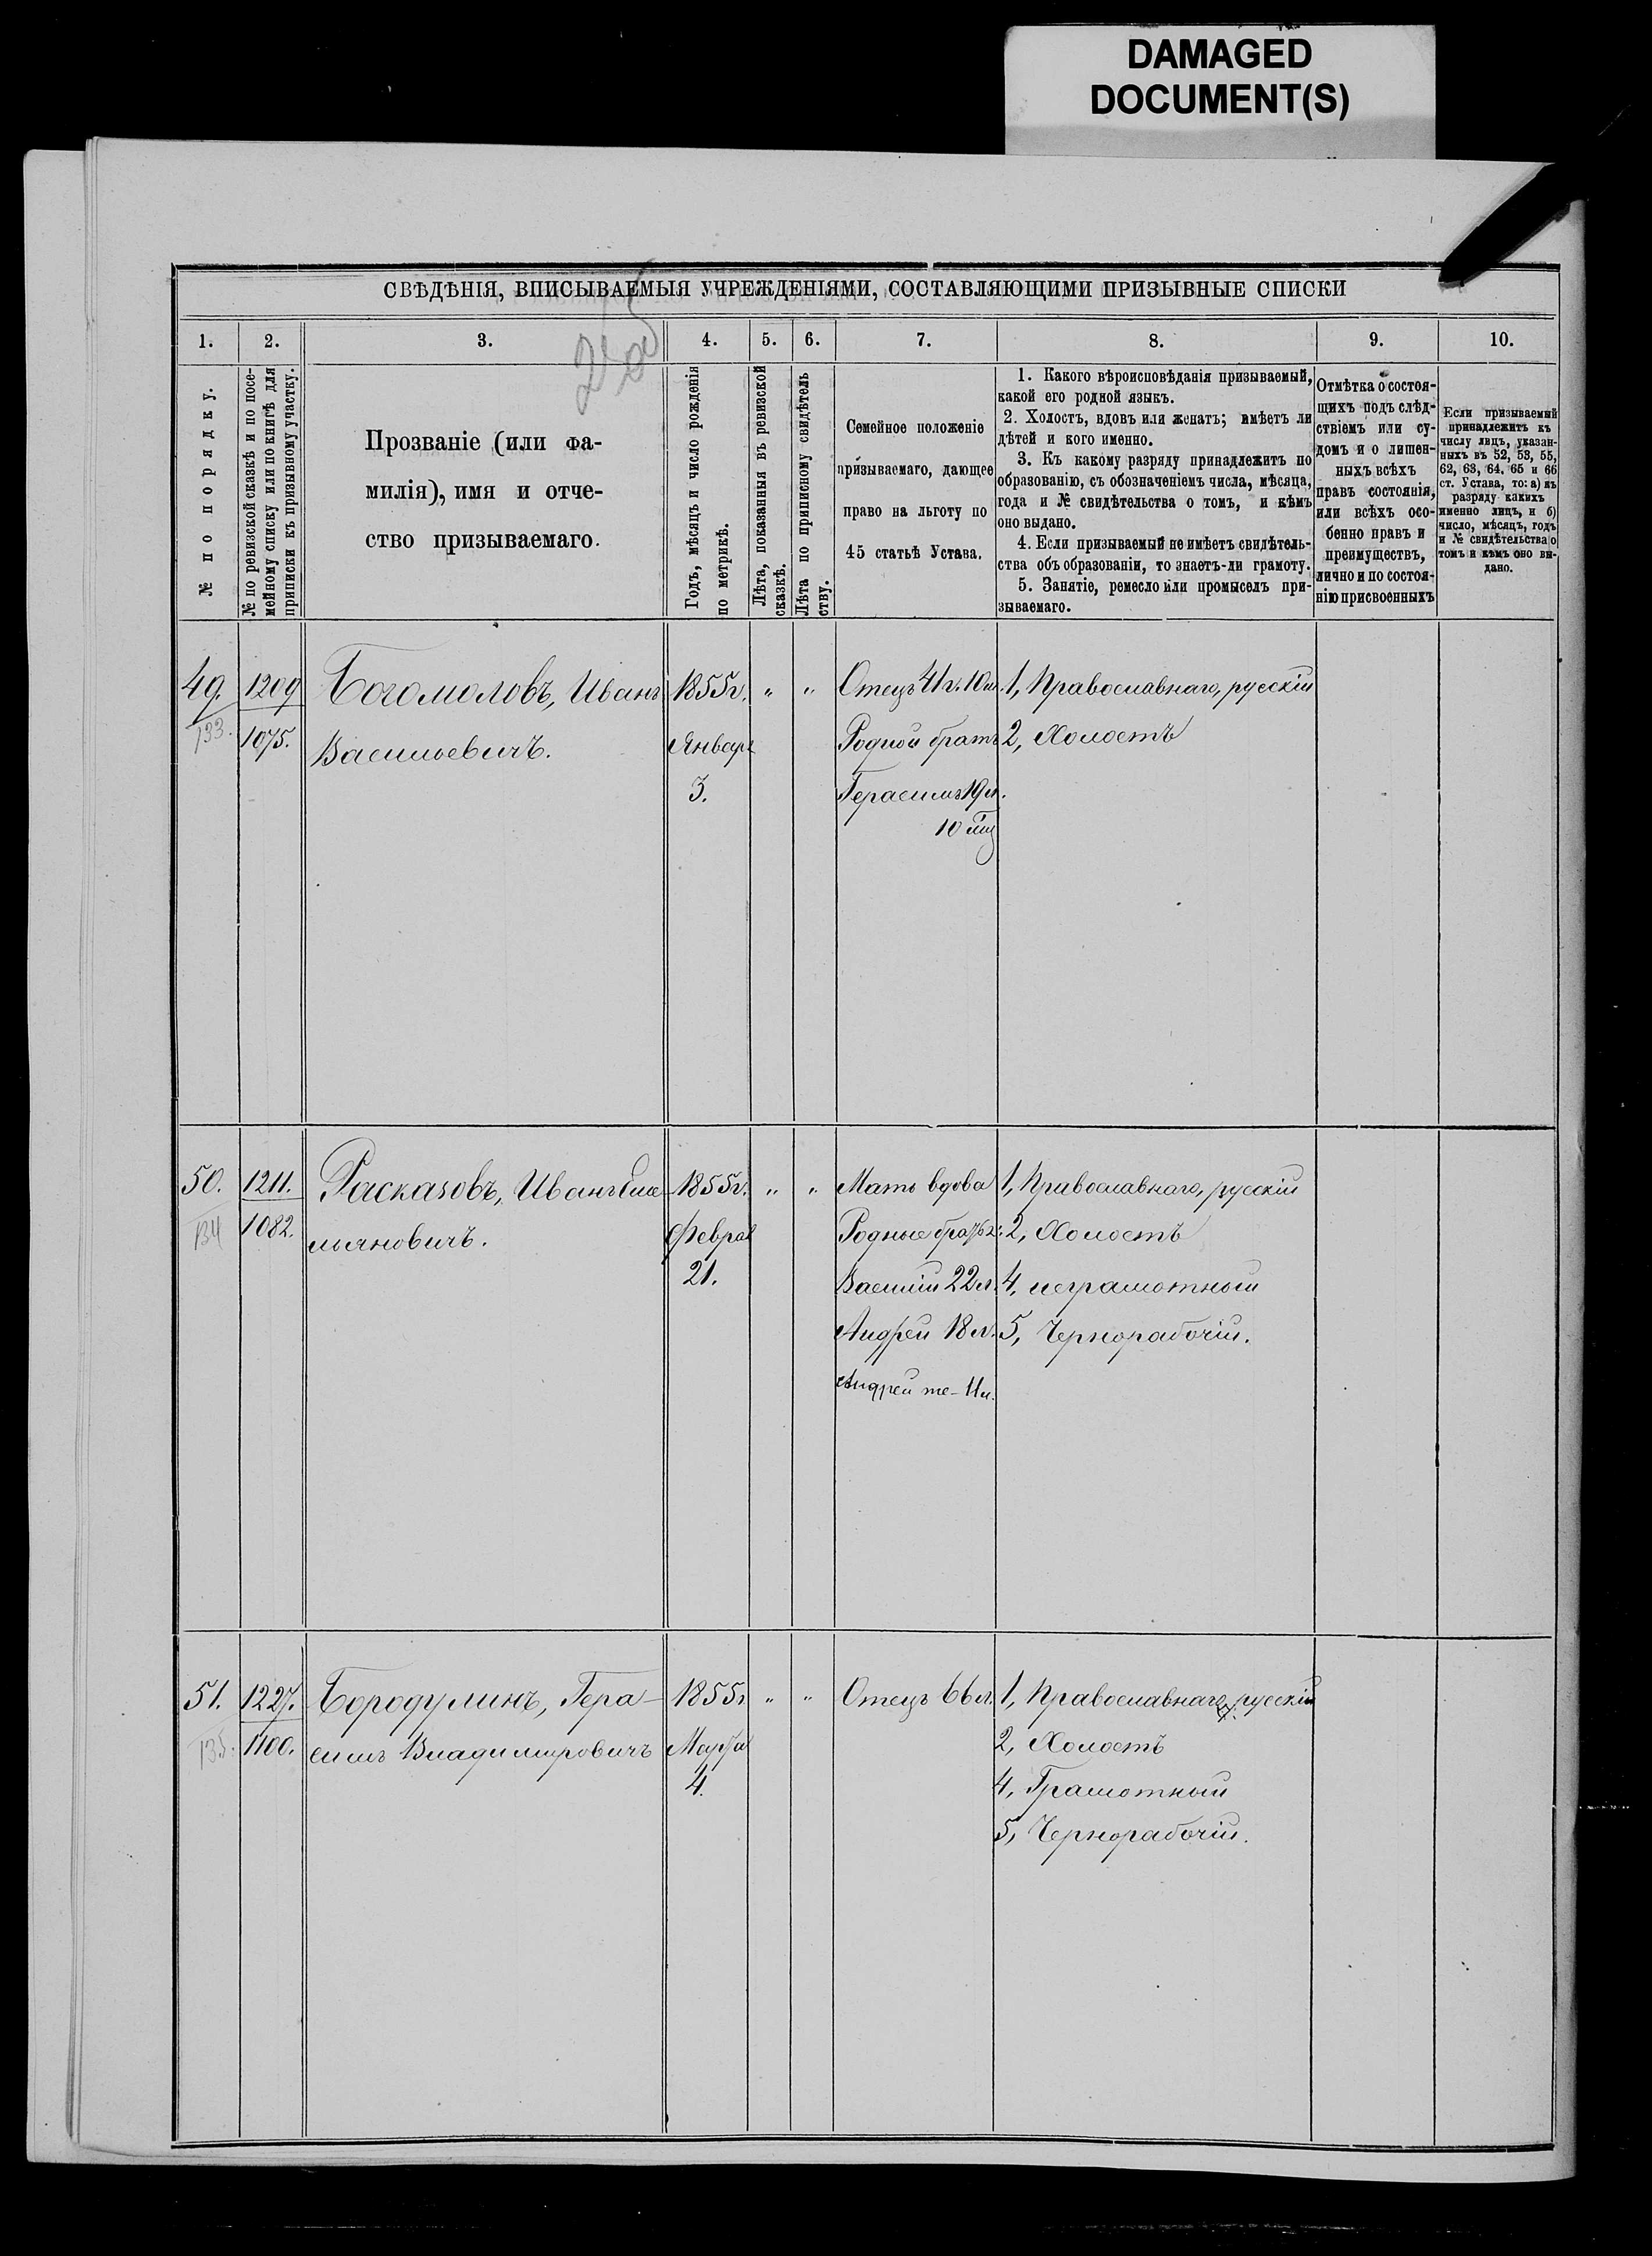 DAMAGED
DOCUMENT(S)
СВѢДѢНІЯ, ВПИСЫВАЕМЫЯ УЧРЕЖДЕНІЯМИ, СОСТАВЛЯЮЩИМИ ПРИЗЫВНЫЕ СПИСКИ
1. 2. 3. 4. 5. 6. 7. 8. 9. 10.
№ по порядку.
№ по ревизской сказкѣ и по посе-
мейному списку или по книгѣ для
приписки къ призывному участку.
Прозваніе (или фа-
милія), имя и отче-
ство призываемаго.
Годъ, мѣсяцъ и число рожденія
по метрикѣ.
Лѣта, показанныя въ ревизской
сказкѣ.
Лѣта по приписному свидѣтель
ству.
Семейное положеніе
призываемаго, дающее
право на льготу по
45 статьѣ Устава.
1. Какого вѣроисповѣданія призываемый,
какой его родной языкъ.
2. Холостъ, вдовъ или женатъ; имѣетъ ли
дѣтей и кого именно.
3. Къ какому разряду принадлежитъ по
образованію, съ обозначеніемъ числа, мѣсяца,
года и № свидѣтельства о томъ, и кѣмъ
оно выдано.
4. Если призываемый не имѣетъ свидѣтель-
ства объ образованіи, то знаетъ-ли грамоту.
5. Занятіе, ремесло или промыселъ при-
зываемаго.
Отмѣтка о состоя-
щихъ подъ слѣд-
ствіемъ или су-
домъ и о лишен-
ныхъ всѣхъ
правъ состоянія,
или всѣхъ осо-
бенно правъ и
преимуществъ,
лично и по состоя-
нію присвоенныхъ
Если призываемый
принадлежитъ къ
числу лицъ, указан-
ныхъ въ 52, 53, 55,
62, 63, 64. 65 и 66
ст. Устава, то: а) къ
разряду какихъ
именно лицъ, и б)
число, мѣсяцъ, годъ
и № свидѣтельства о
томъ и кѣмъ оно вы-
дано.
49.
133.
1209
1075.
Богомоловъ, Иванъ
Васильевичъ.
1855г.
Январ
3.
" "
Отецъ 41г. 10м.
Родной братъ
Герасимъ 19л.
10 мц
1, Православнаго, русскій
2, Холостъ
50.
134
1211.
1082.
Расказовъ, Иванъ Еме
льяновичъ.
1855г.
Феврал
21.
" "
Мать вдова
Родные братья:
Василій 22л.
Андрей 18л.
Андрей же - 11л.
1, Православнаго, русскій
2, Холостъ
4, неграмотный
5, Чернорабочій.
51.
135.
1227.
1100.
Бородулинъ, Гера-
симъ Владимировичъ
1855г
Марта
4.
" "
Отецъ 66л.
1, Православнаго, русскій
2, Холостъ
4, Грамотный
5, Чернорабочій.